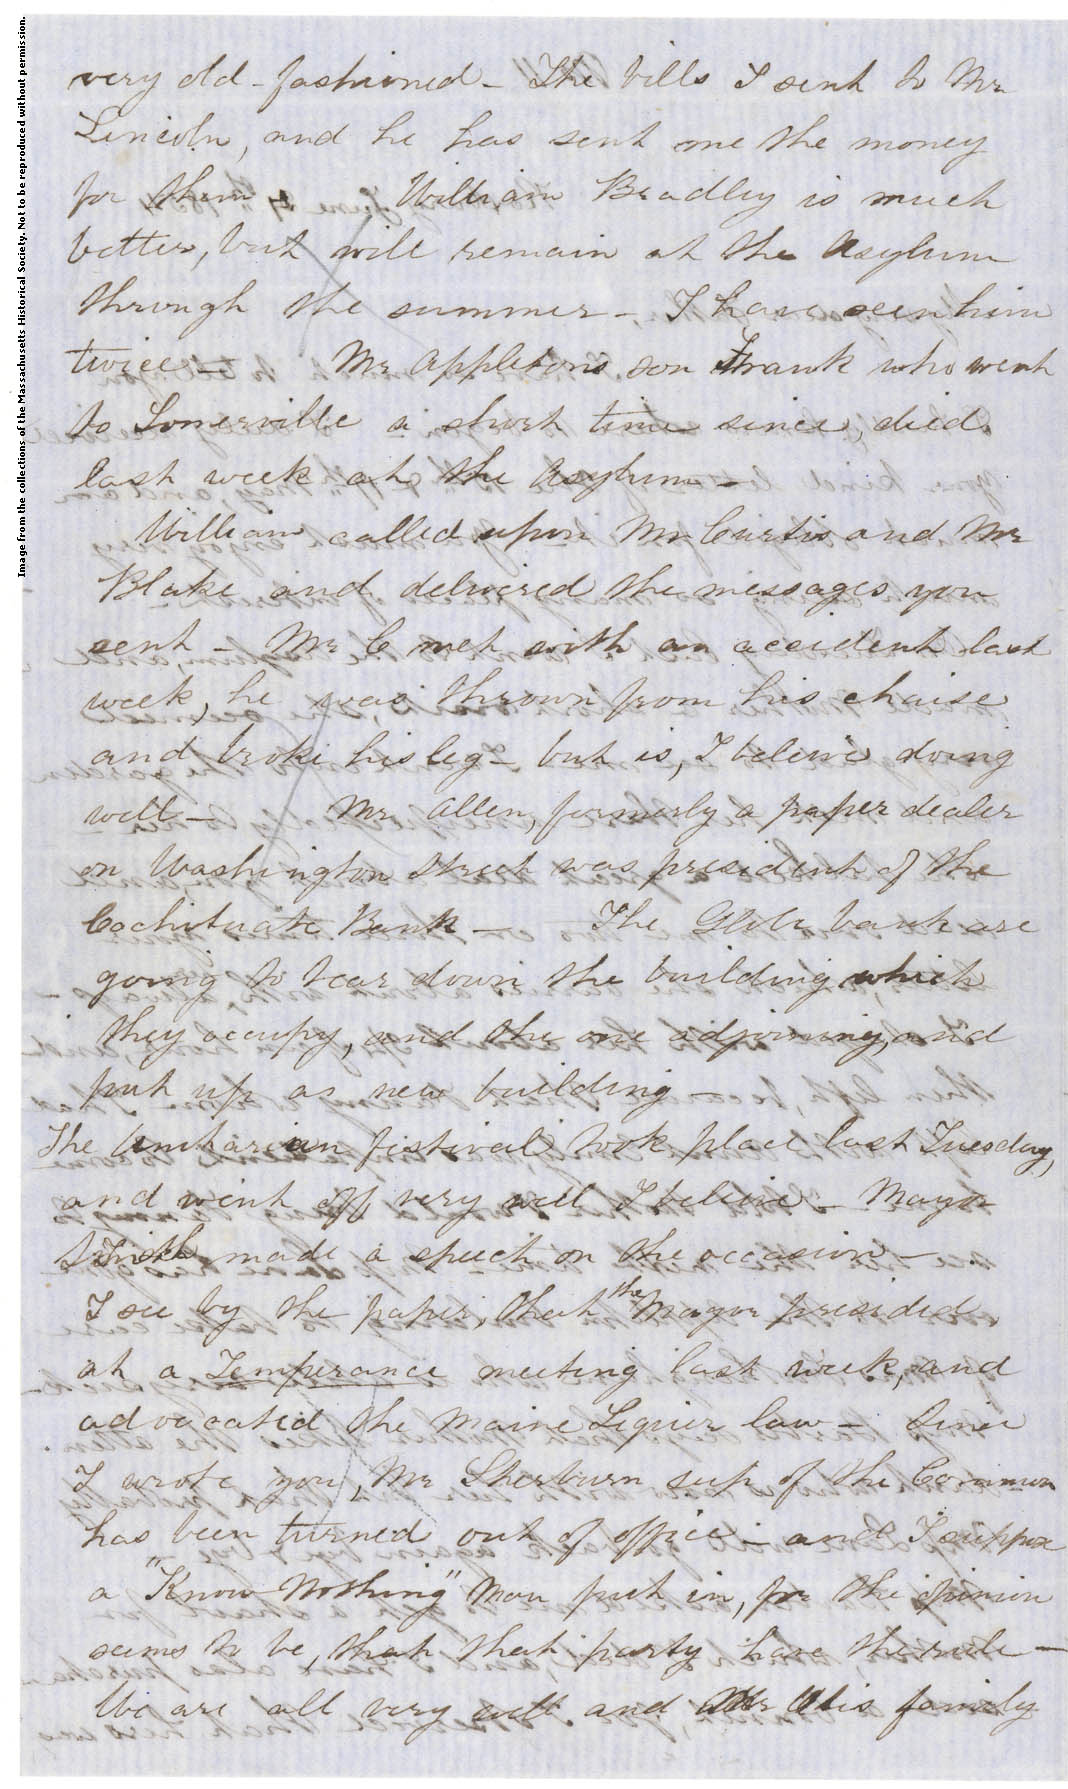 very old-fashioned - The bills I sent to Mr
Lincoln, and he has sent me the money
for them. William Bradley is much
better, but will remain at the Asylum
through the summer - I have seen him
twice - Mr Appletons son Frank who went
to Somerville a short time since, died
last week at the Asylum -
William called upon Mr Curtis and Mr
Blake and delivered the messages you
sent - Mr C met with an accident last
week, he was thrown from his chaise
and broke his leg - but is, I believe doing
well - Mr Allen, formerly a paper dealer
on Washington Street was president of the
Cochituate Bank - The Globe bank are
going to tear down the building which
they occupy, and the one adjoining, and
put up as new building -
The Unitarian festival took place last Tuesday,
and went off very well I believe - Mayor
Smith made a speech on the occasion -
I see by the paper, that the Mayor presided
at a Temperance meeting last week, and
advocated the Maine Liquier law - Since
I wrote you, Mr Sherburn sup of the Common
has been turned out of office - and I suppose
a "Know Nothing" Man put in, for the opinion
seems to be, that that party have the rule -
We are all very well and Mr Otis family
Image from the collections of the Massachusetts Historical Society. Not to be reproduced without permission.